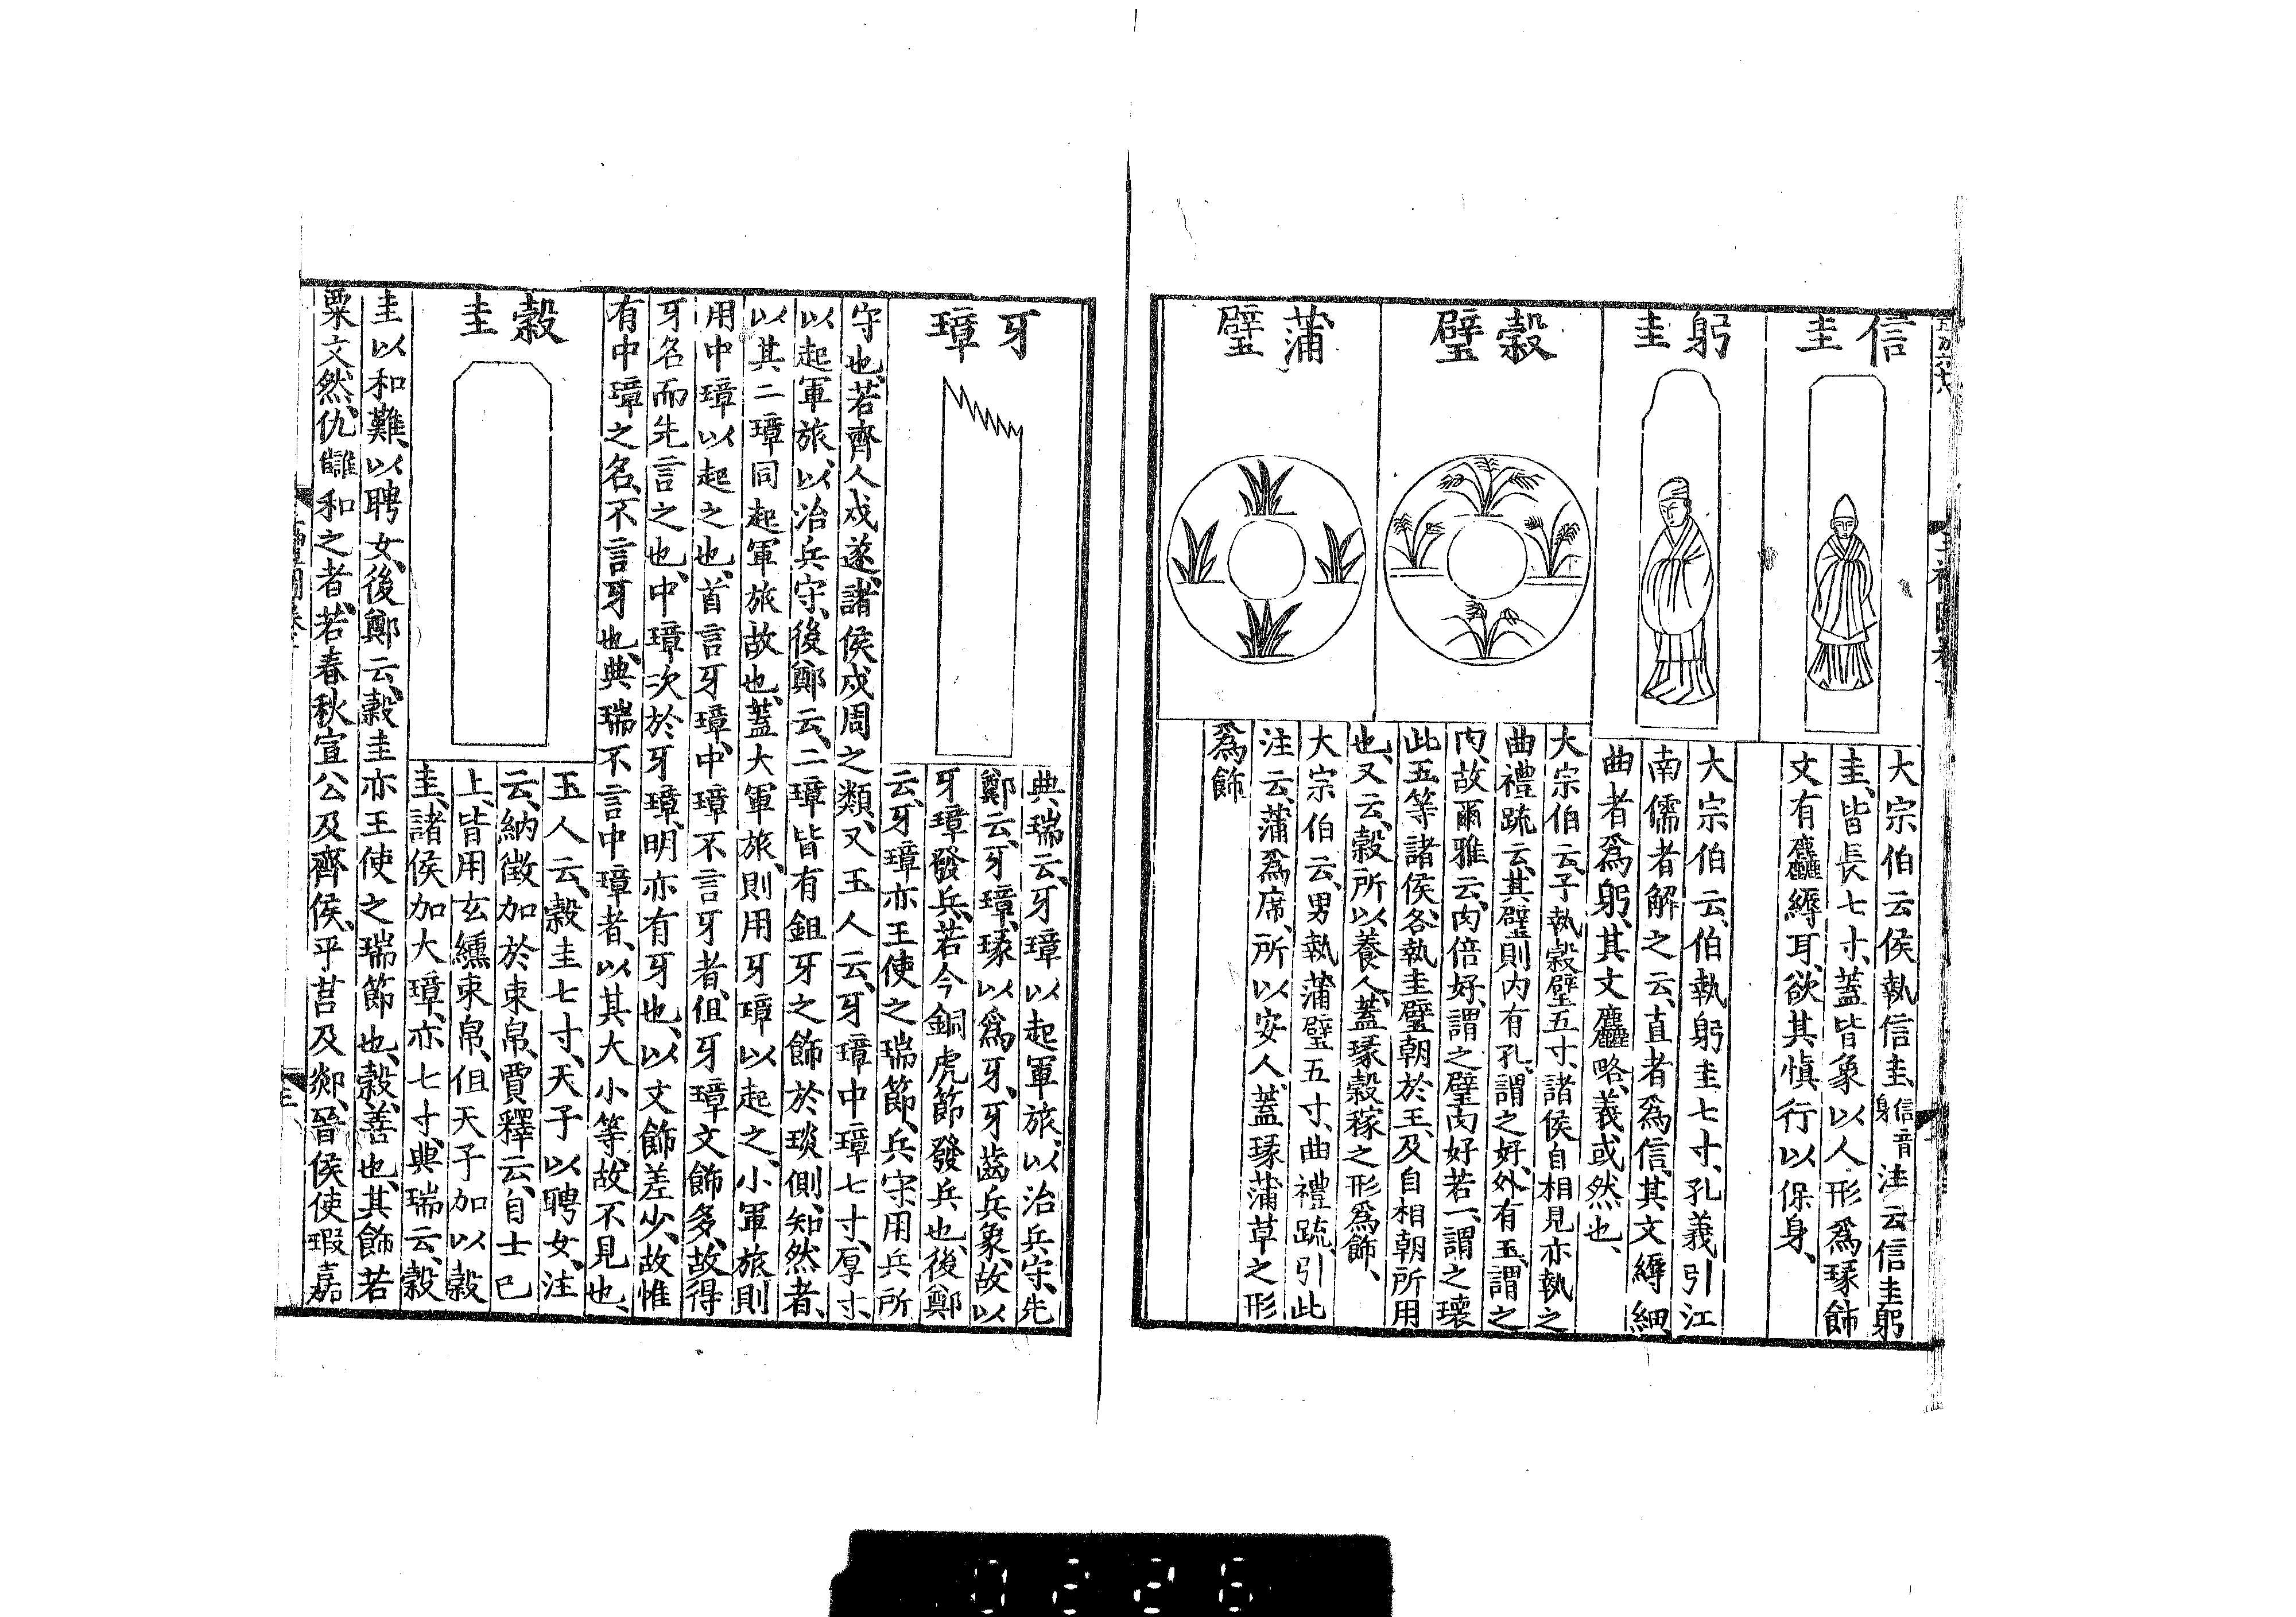 信圭
大宗伯云侯執信圭、信音身注云信圭躬
圭、皆長七寸、蓋皆象以人形爲瑑飾
文有麤縟耳、欲其愼行以保身、
躬圭
大宗伯云、伯執躬圭七寸、孔義引江
南儒者解之云、直者爲信、其文縟細、
曲者爲躬、其文麤略、義或然也、
穀璧
大宗伯云、子執穀璧五寸、諸侯自相見亦執之
曲禮疏云、其璧則内有孔、謂之好、外有玉、謂之
肉、故爾雅云、肉倍好、謂之璧、肉好若一、謂之瓌
此五等諸侯、各執圭璧、朝於王、及自相朝所用
也、又云、穀所以養人、蓋瑑穀稼之形爲飾、
蒲璧
大宗伯云、男執蒲璧五寸、曲禮疏、引此
注云、蒲爲席、所以安人、蓋瑑蒲草之形
爲飾
牙璋
典瑞云、牙璋以起軍旅、以治兵守、先
鄭云、牙璋、瑑以爲牙、牙齒兵象、故以
牙璋發兵、若今銅虎節發兵也、後鄭
云、牙璋亦王使之瑞節、兵守、用兵所
守也、若齊人戍遂、諸侯戍周之類、又玉人云、牙璋中璋七寸、厚寸、
以起軍旅、以治兵守、後鄭云、二璋皆有鉏牙之飾於琰側、知然者、
以其二璋同起軍旅故也、蓋大軍旅、則用牙璋以起之、小軍旅則
用中璋以起之也、首言牙璋、中璋不言牙者、但牙璋文飾多、故得
牙名而先言之也、中璋次於牙璋、明亦有牙也、以文飾差少、故惟
有中璋之名、不言牙也、典瑞不言中璋者、以其大小等、故不見也、
穀圭
玉人云、穀圭七寸、天子以聘女、注
云、納徵加於束帛、賈釋云、自士已
上、皆用玄纁束帛、但天子加以穀
圭、諸侯加大璋、亦七寸、典瑞云、穀
圭以和難、以聘女、後鄭云、穀圭亦王使之瑞節也、穀、善也、其飾若
粟文然、仇讎和之者、若春秋宣公及齊侯、平莒及郯、晉侯使瑕嘉
0226